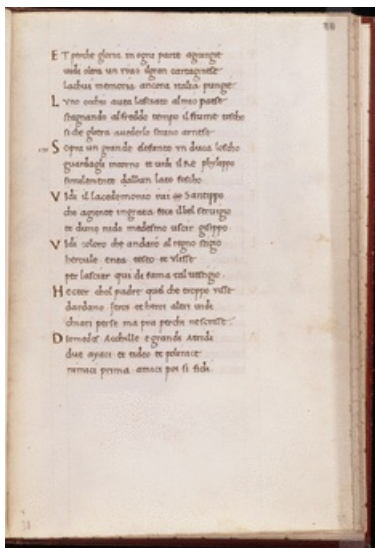 ET perche gloria in ogni parte agiunge
uidi oltra un riuo il gran cartagnese
la chui memoria ancora italia punge
L uno occhio auea lasciato al mio paese
stagnando al freddo tempo il fiume toscho
si che gliera auederlo strano arnese
S opra un grande elefante un duca loscho
guardagli intorno et uidi il Re phylippo
similemente dallun lato foscho
V idi il lacedemonio Santippo
che agiente ingrata fece il bel seruigio
et duno nido medesmo uscir gisippo
V idi coloro che andaro al regno stigio
hercule enea teseo et vlisse
per lasciar qui di fama tal uestigio
H ector chol padre quel che troppo uisse
dardano et heroi altri uidi
chiari per se ma piu perche ne scrisse
D iomedes Acchille e grandi Atridi
due ayaci et tideo et polinice
nimici prima amici poi si fidi